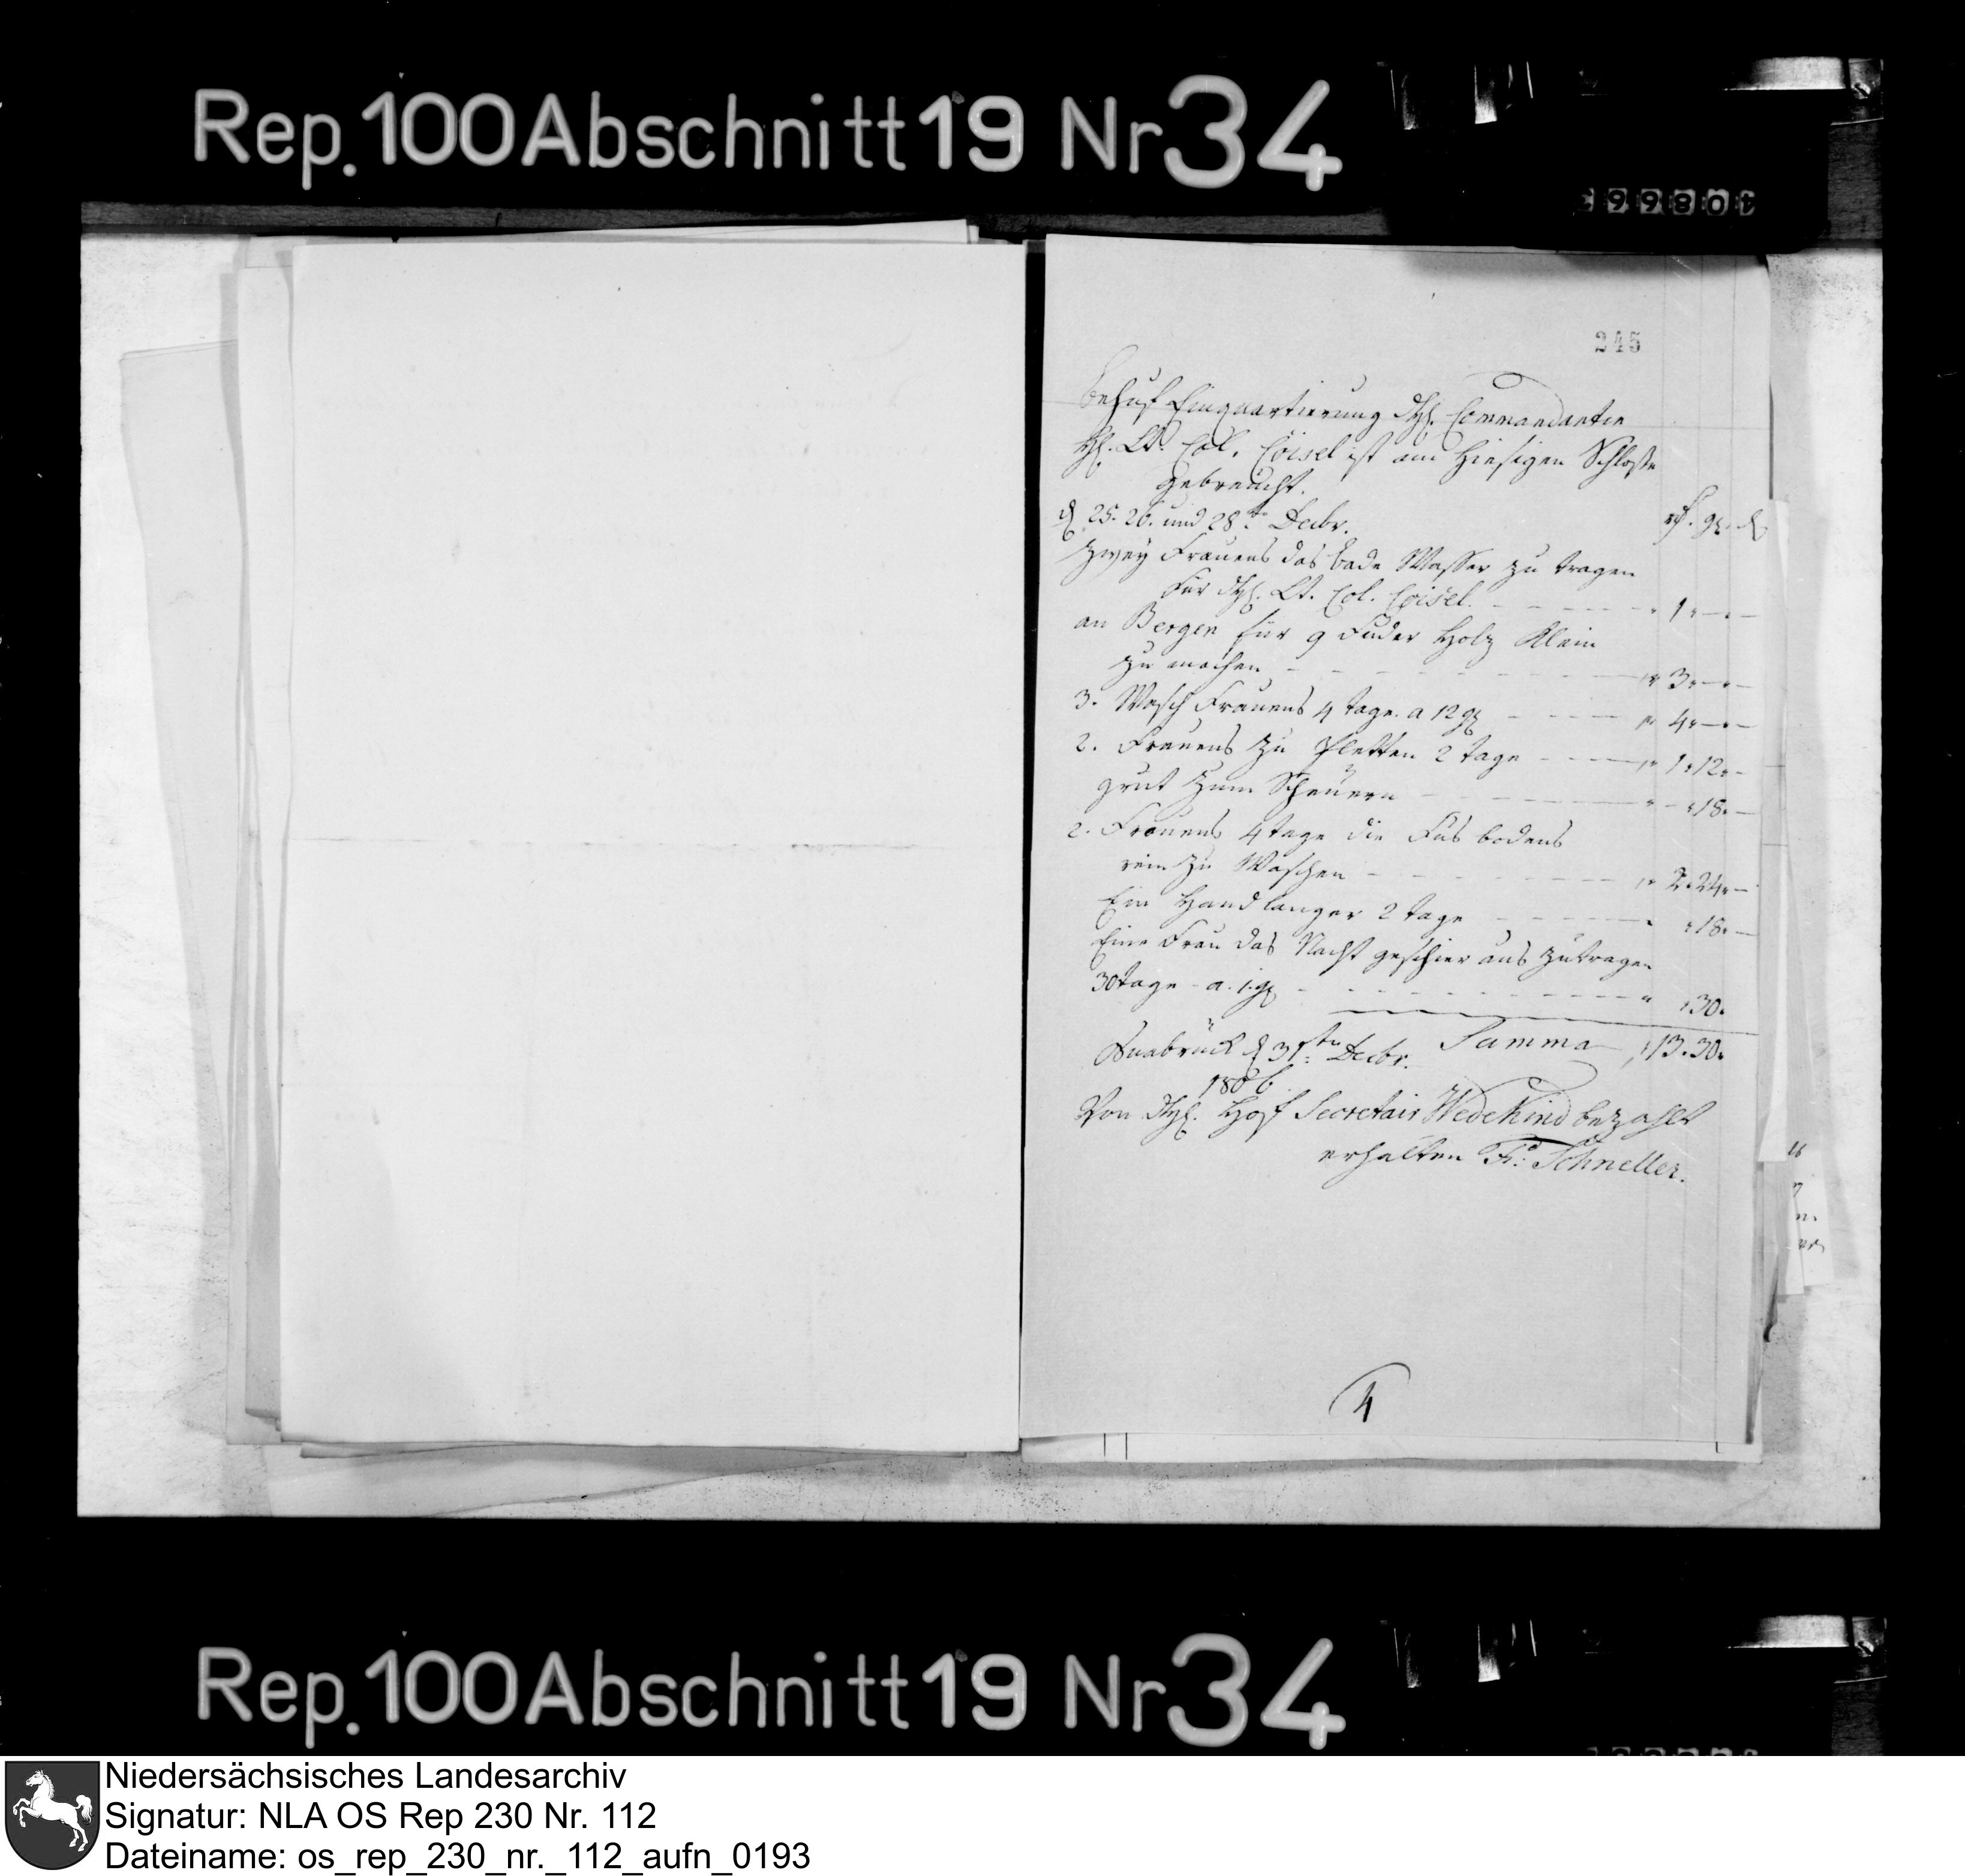 Rep. 100 Abschnitt 19 Nr 34
245
Behuf Einquartierung Commandanten
Lt. Col. Coisel ist am hiesigen Schloße
gebraucht.
d 25. 26. und 28ten Decbr. rt. gr. d
Zwey Frauens das bade Wasser zu tragen
für Lt. Col. Coisel. - - - - 1 - -
an Bergen für 9 Fuder Holz Klein
zu machen - - - - 3 - -
3. Wasch Frauens 4 tage. a 12 gr - - - 4 - -
2. Frauens zu Pletten 2 tage - - - 1 12 -
zum Scheuern - - - 18 -
2. Frauens 4 tage die Fus bodens
rein zu Waschen - - - 2. 24 -
Ein Handlanger 2 tage - - - 18 -
Eine Frau das Nacht geschier aus zu tragen
30 tage - a. 1. gr - - - 30.
Osnabrück d 31sten Decbr. Summa 13. 30.
1806
Von Hof Secretair Wedekind bezahlt
erhalten Fr: Schneller.
4
Rep. 100 Abschnitt 19 Nr 34
Niedersächsisches Landesarchiv
Signatur: NLA OS Rep 230 Nr. 112
Dateiname: os_rep_230_nr._112_aufn_0193